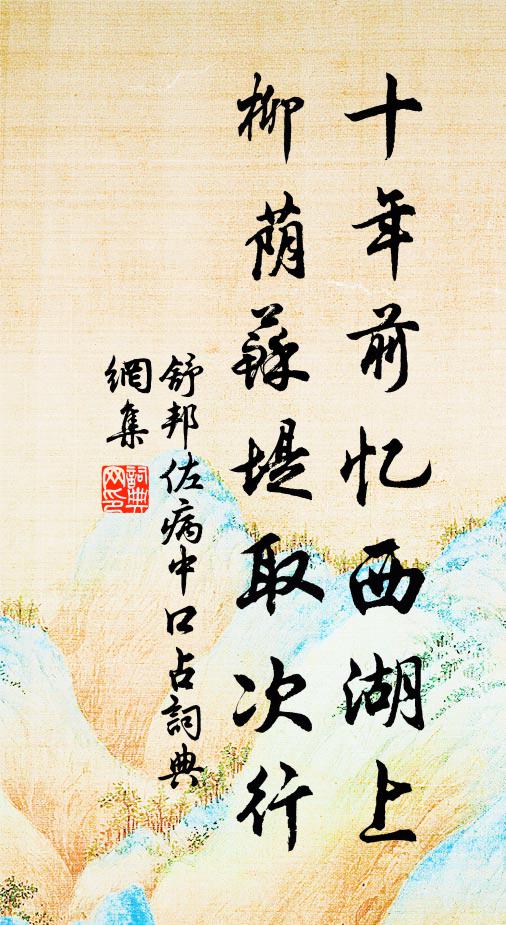 十年前忆西湖上
柳荫苏堤取次行
舒邦佐病中口占詞典
網集
詞典
网印